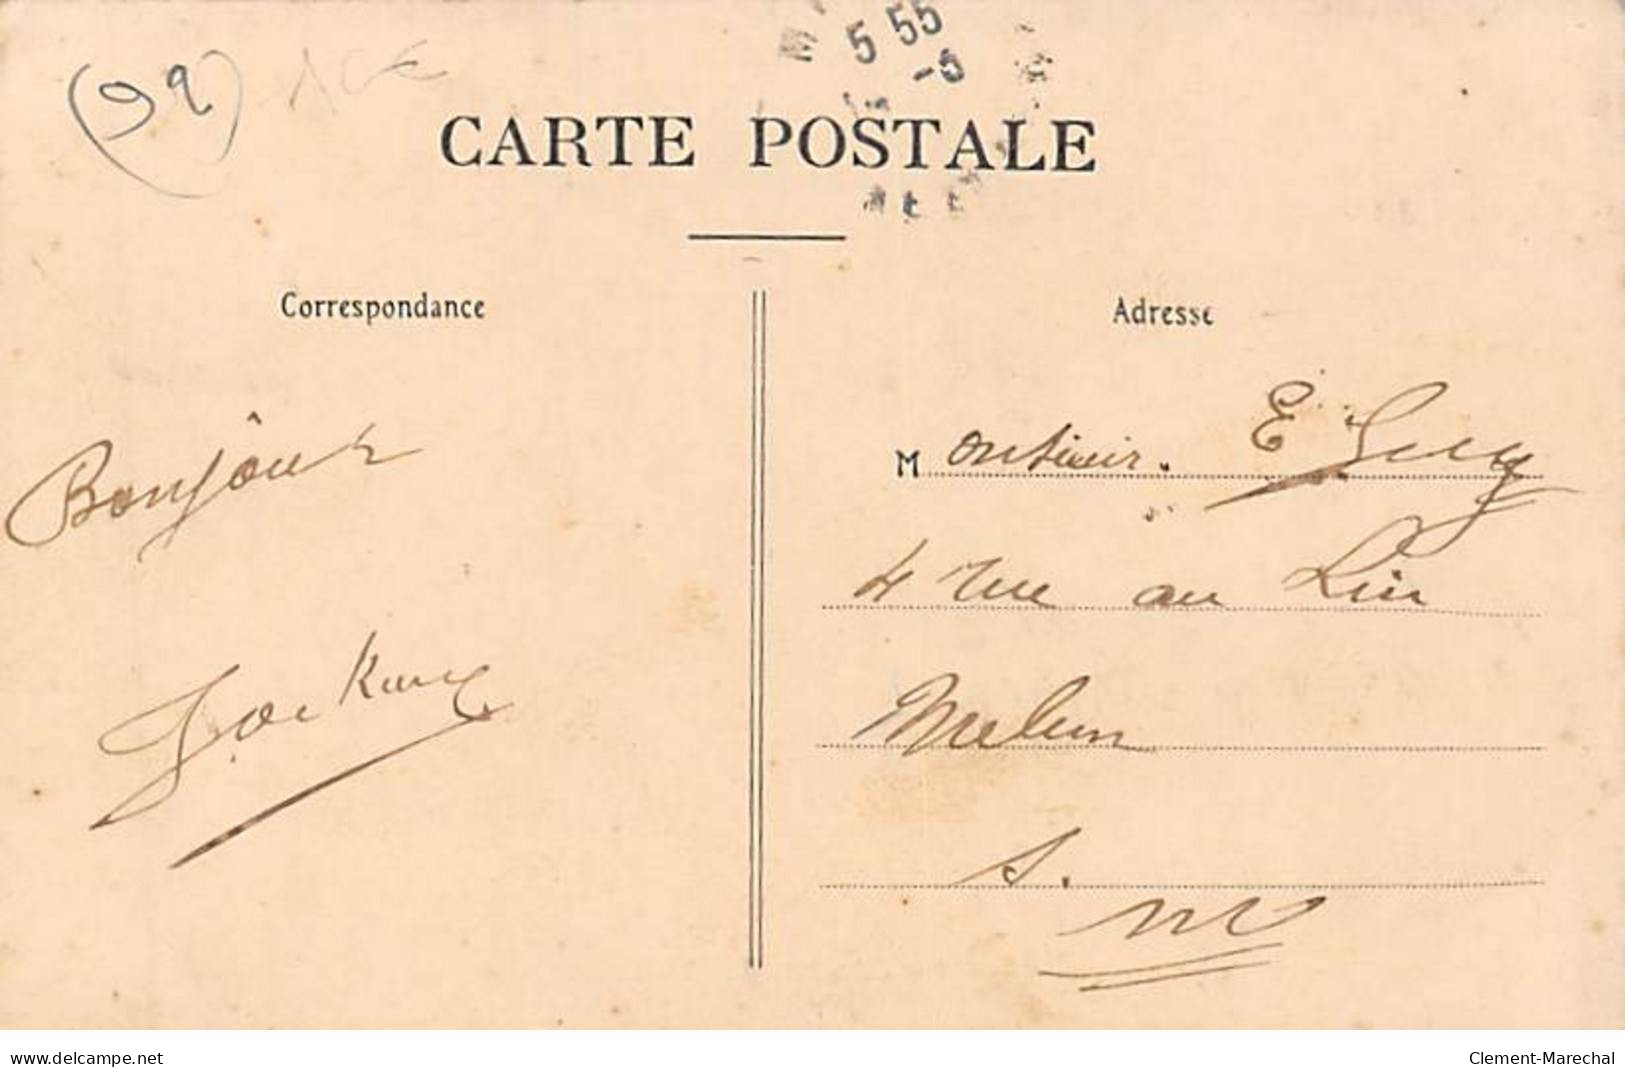 (92)
5 55
-5
CARTE POSTALE
Correspondance
Adresse
Bonjour
Monsieur. E
4 rue au Lin
Melun
S.
M
www.delcampe.net
Clement-Marechal